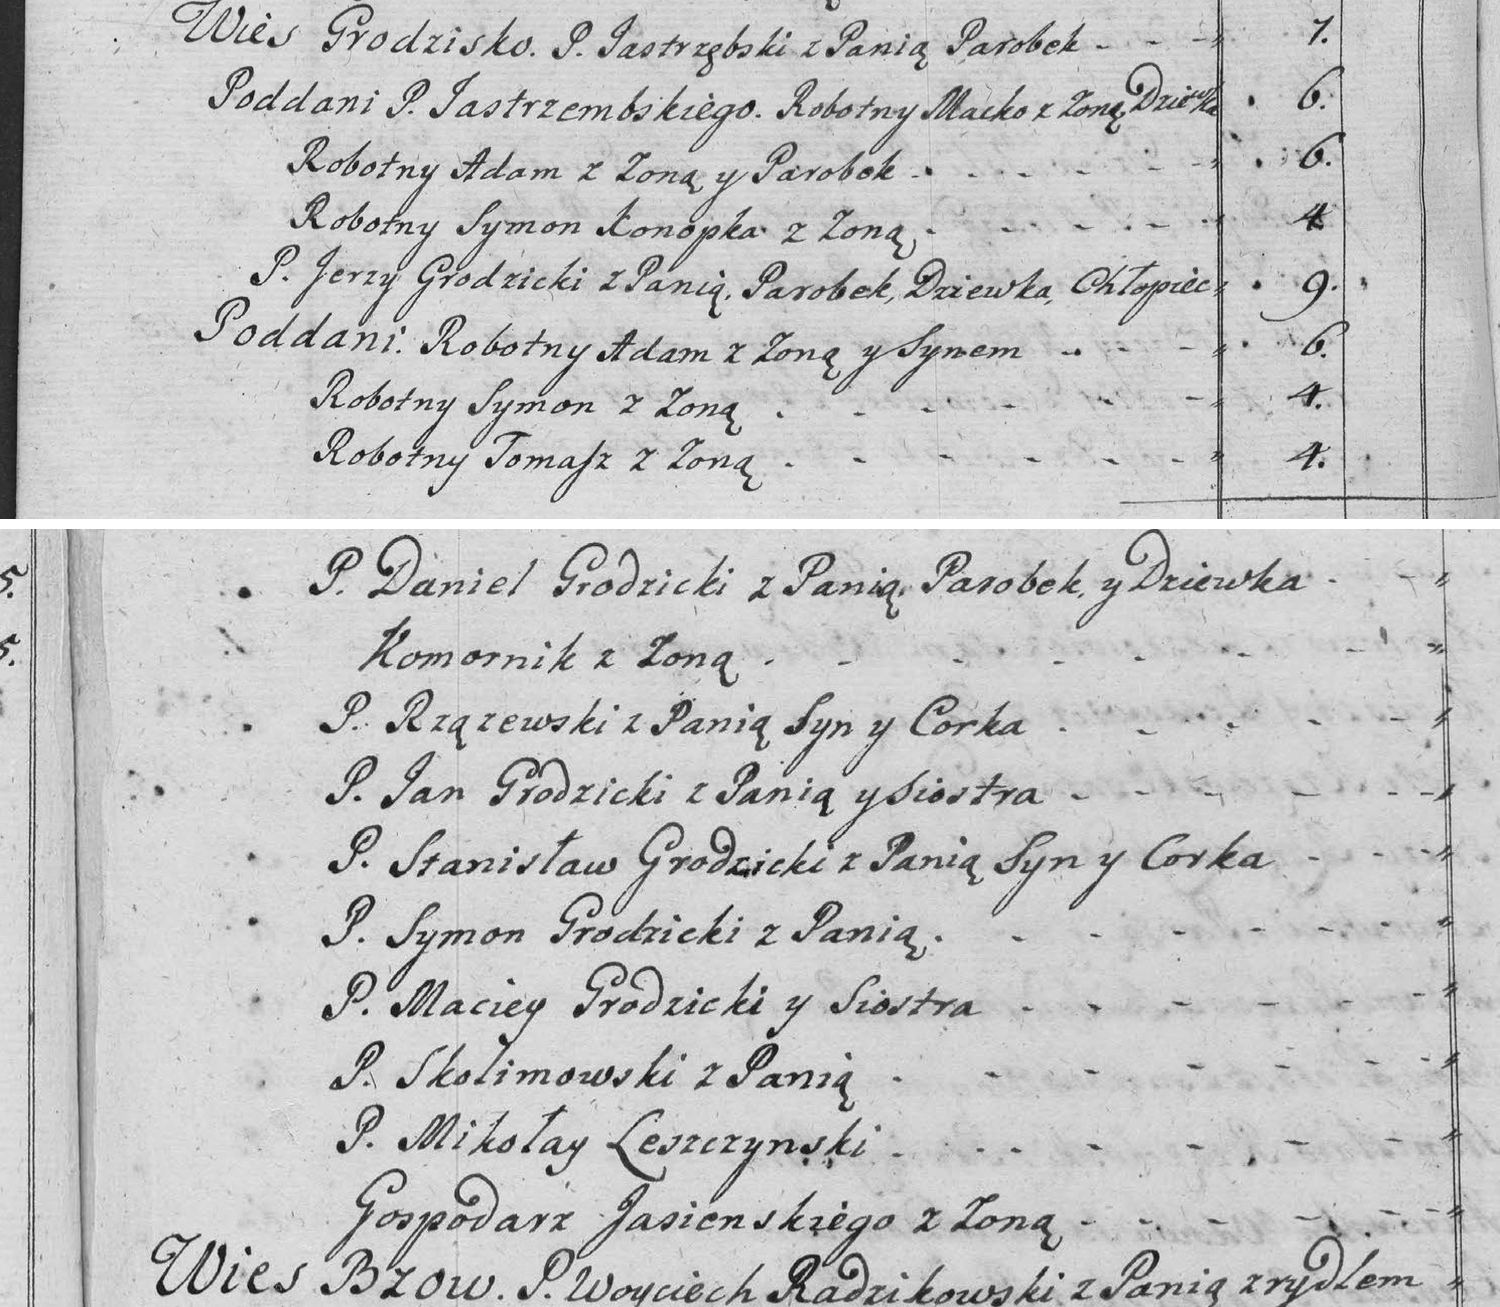 Wies Grodzisko. P. Jastrzębski z Panią Parobek - - - " 7.
Poddani P. Jastrzembskiego. Robotny Maćko z Zoną Dziewka . 6.
Robotny Adam z Zoną y Parobek - - - - - " 6.
Robotny Symon Konopka z Zoną - - - - - " 4
P. Jerzy Grodzicki z Panią, Parobek, Dziewka, Chłopiec " 9.
Poddani. Robotny Adam z Zoną y Synem - - - " 6.
Robotny Symon z Zoną . - - - - - " 4.
Robotny Tomasz z Zoną . - - - - - - " 4.
5. P. Daniel Grodzicki z Panią, Parobek, y Dziewka - - "
5. Komornik z Zoną . - - - - - - - "
P. Rzązewski z Panią Syn y Corka - - - - - "
P. Jan Grodzicki z Panią y Siostra - - - - - "
P. Stanisław Grodzicki z Panią Syn y Corka - - - "
P. Symon Grodzicki z Panią . - - - - - - "
P. Maciey Grodzicki y Siostra - - - - - - "
P. Skolimowski z Panią - - - - - - "
P. Mikołay Leszczynski - - - - - - "
Gospodarz Jasienskiego z Zoną - - - - - - "
Wies Bzow. P. Woyciech Radzikowski z Panią z rydlem "